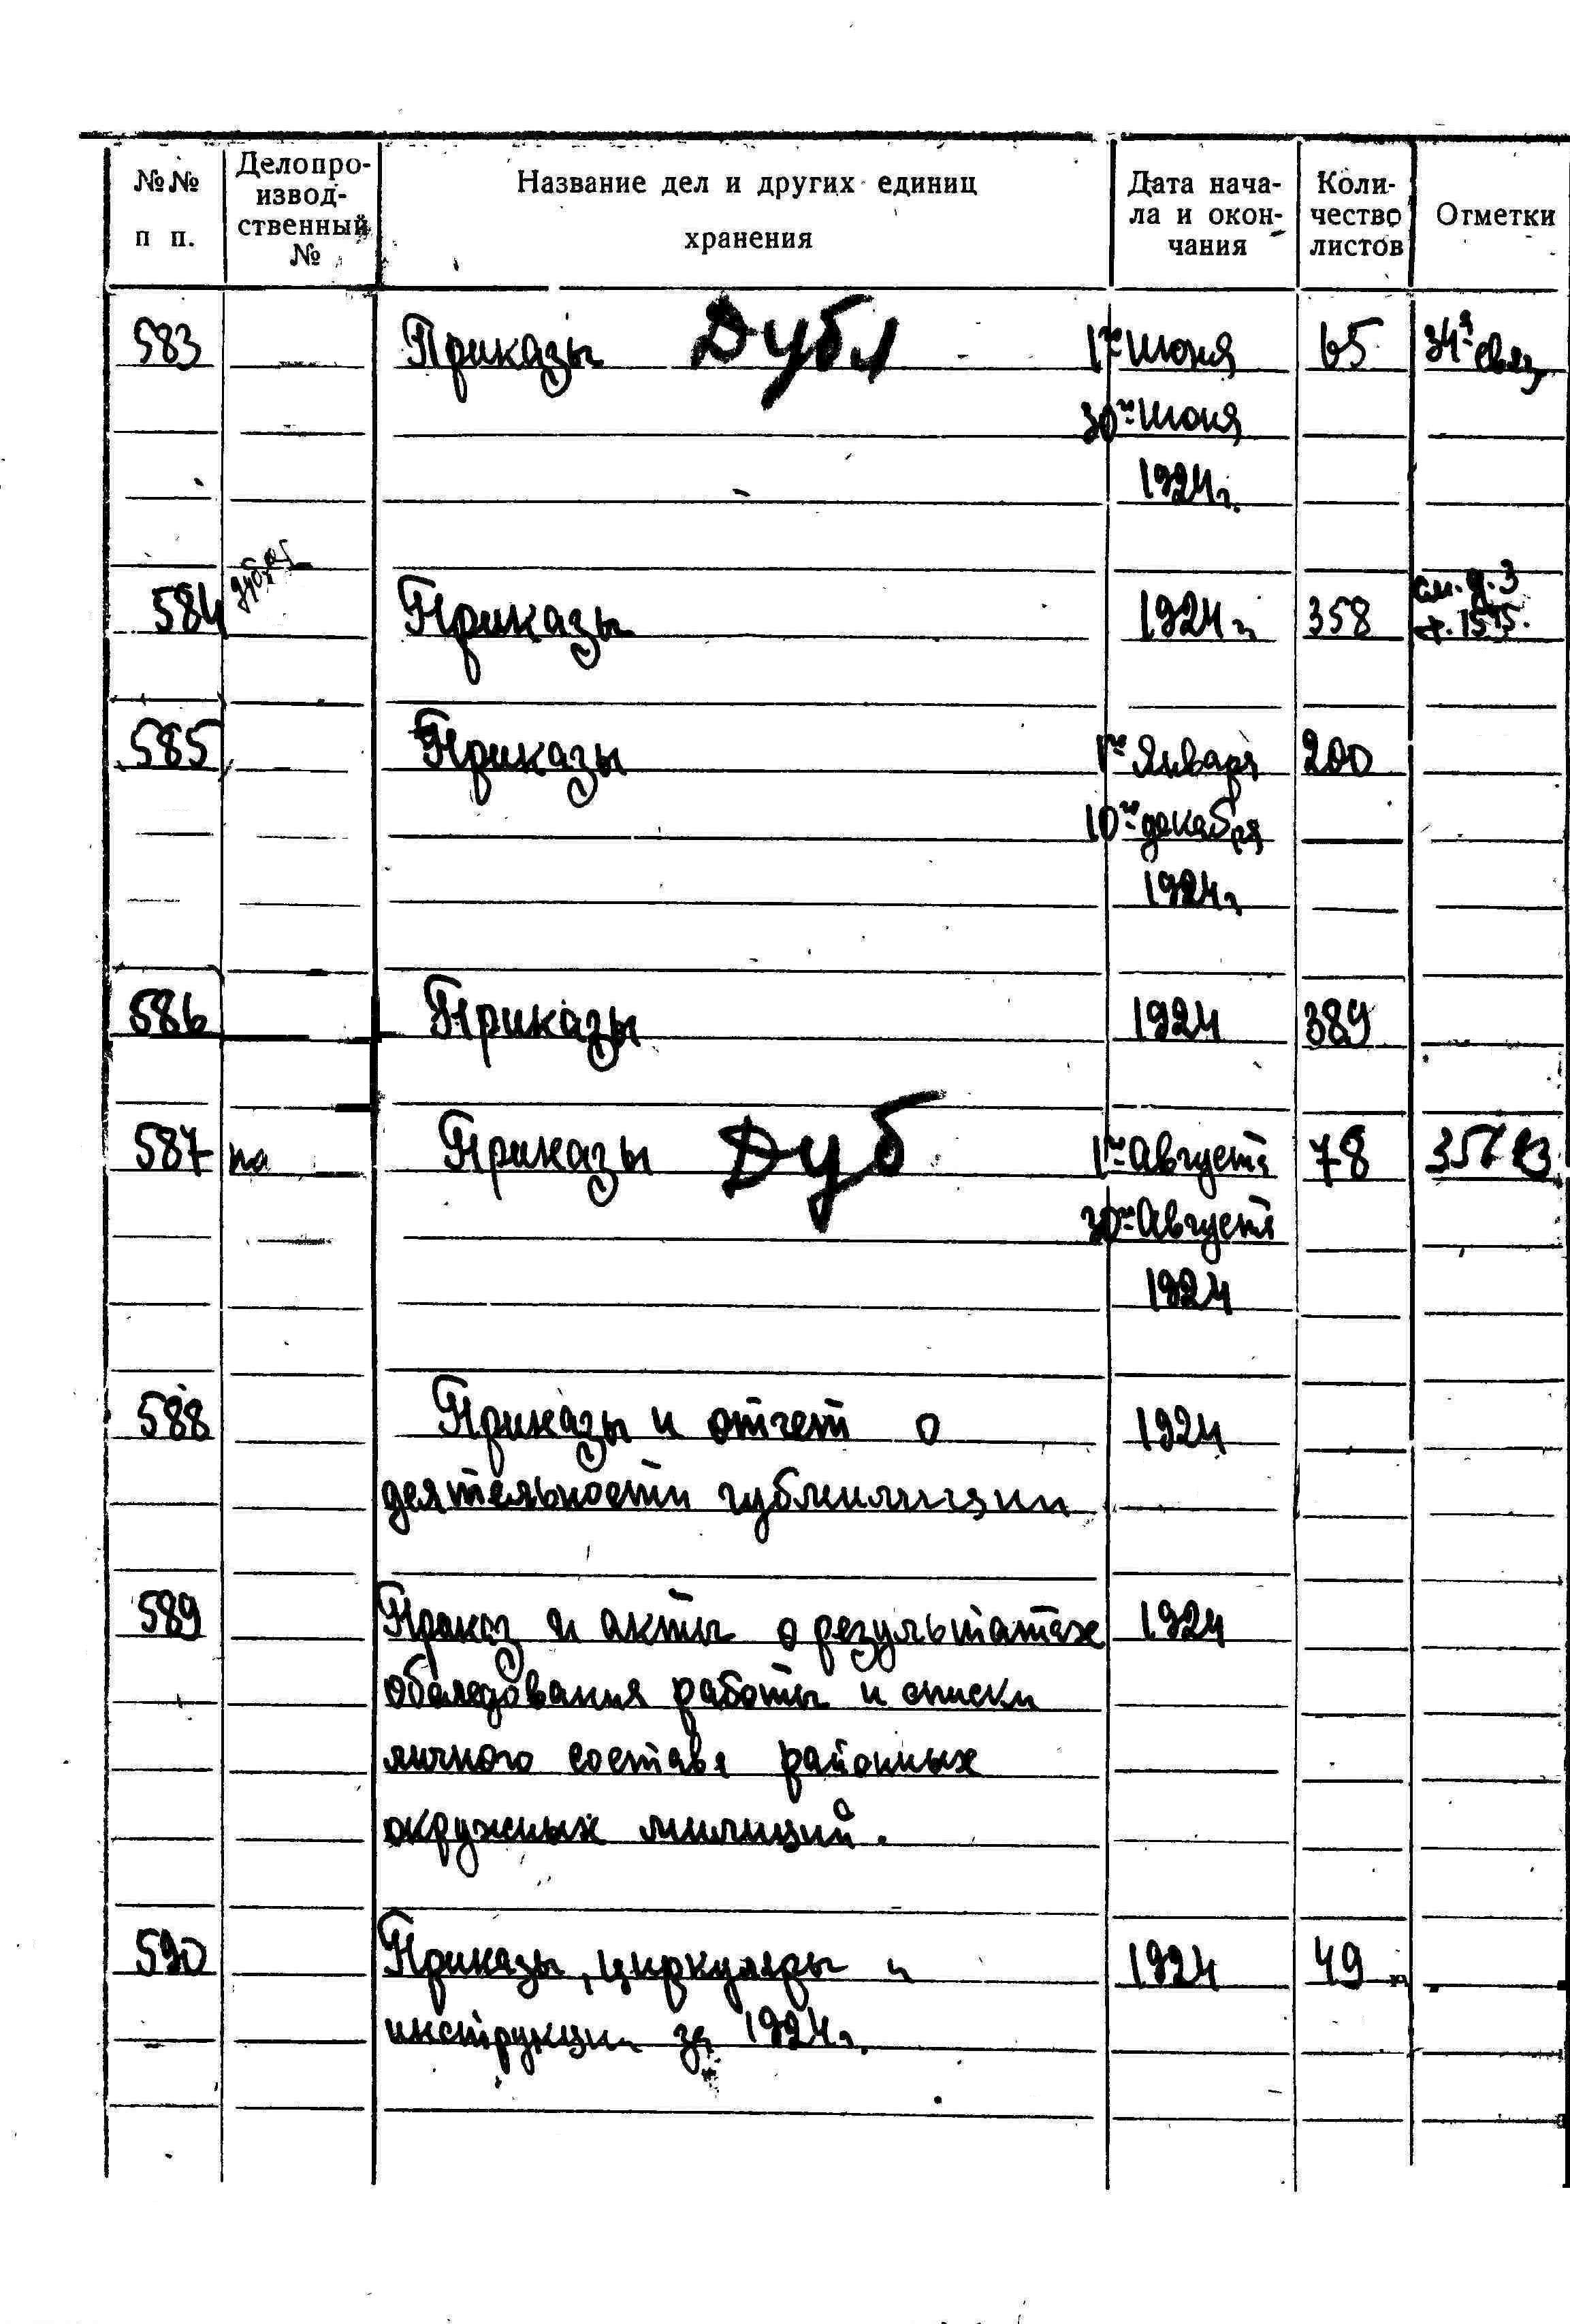 №№ п п. Делопроизвод-ственный № Название дел и других единиц хранения Дата начала и окончания Количество листов Отметки
583 Приказы Дубл 1го июня 65 34я связ
30го июня
1924г.
584 Приказы 1924г 358 см. д. 3
585 Приказы 1го Января 200
10го декабря
1924г
586 Приказы 1924 389
587 Приказы Дуб 1го Августа 78
30го Августа
1924
588 Приказы и отчет о 1924
деятельности губмилиции
589 Приказ и акты о результатах 1924
обследования работы и списки
личного состава районных
окружных милиций.
590 Приказы, циркуляры и 1924 49
инструкции за 1924г.